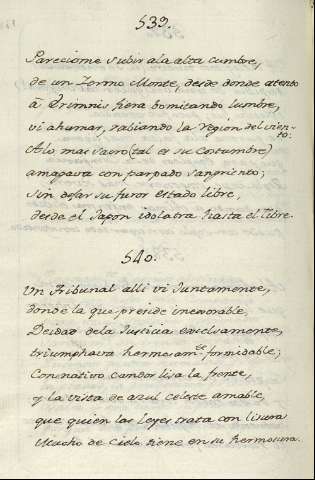 539.
Pareciome subir a la alta cumbre,
de un Yermo Monte, desde donde atento
à Erimnis fiera bomitando lumbre,
vi ahumar, rabiando la region del viento.
A lo mas Sacro (tal es su Costumbre)
amagava con parpado sangriento;
sin dejar su furor estado libre,
desde el Japon idolatra hasta el Tibre.
540.
Un Tribunal alli vi juntamente,
donde la que preside inexorable,
Deidad de la Justicia excelsamente,
triumphava hermosamte formidable;
Con nativo candor lisa la frente,
y la vista de azul celeste amable,
que quien las leyes trata con lisura
Mucho de Cielo tiene en su hermosura.